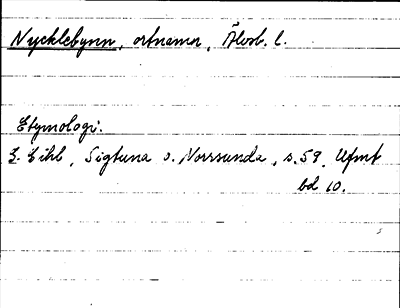 Nycklebynn, ortnamn, Älvsb. l.
Etymologi.
E. Eihl, Sigtuna o. Norrsunda, s. 59, Ufmt
bd 10.